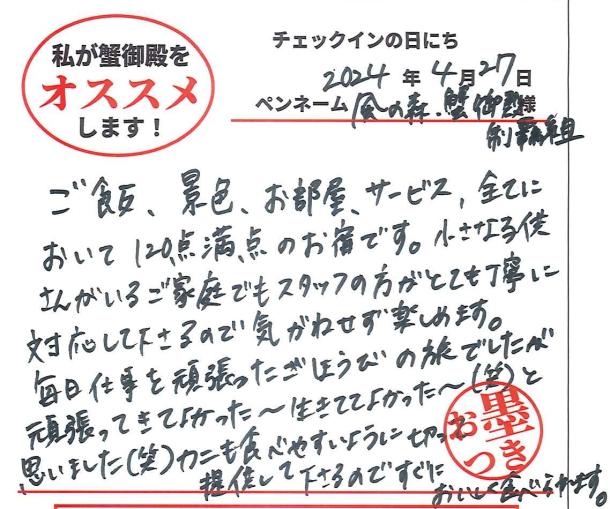 私が蟹御殿を
オススメ
します!
チェックインの日にち
2024年4月27日
ペンネーム 風の森.蟹御殿様
制覇組
ご飯、景色、お部屋、サービス,全てに
おいて120点満点のお宿です。小さなお子供
さんがいるご家庭でもスタッフの方がとても丁寧に
対応して下さるので気がねせず楽しめます。
毎日仕事を頑張ったごほうびの旅でしたが
頑張ってきてよかった〜生きててよかった〜(笑)と
思いました(笑)カニも食べやすいように切って
提供して下さるのですぐに
おいしく食べられます。
お墨
つき